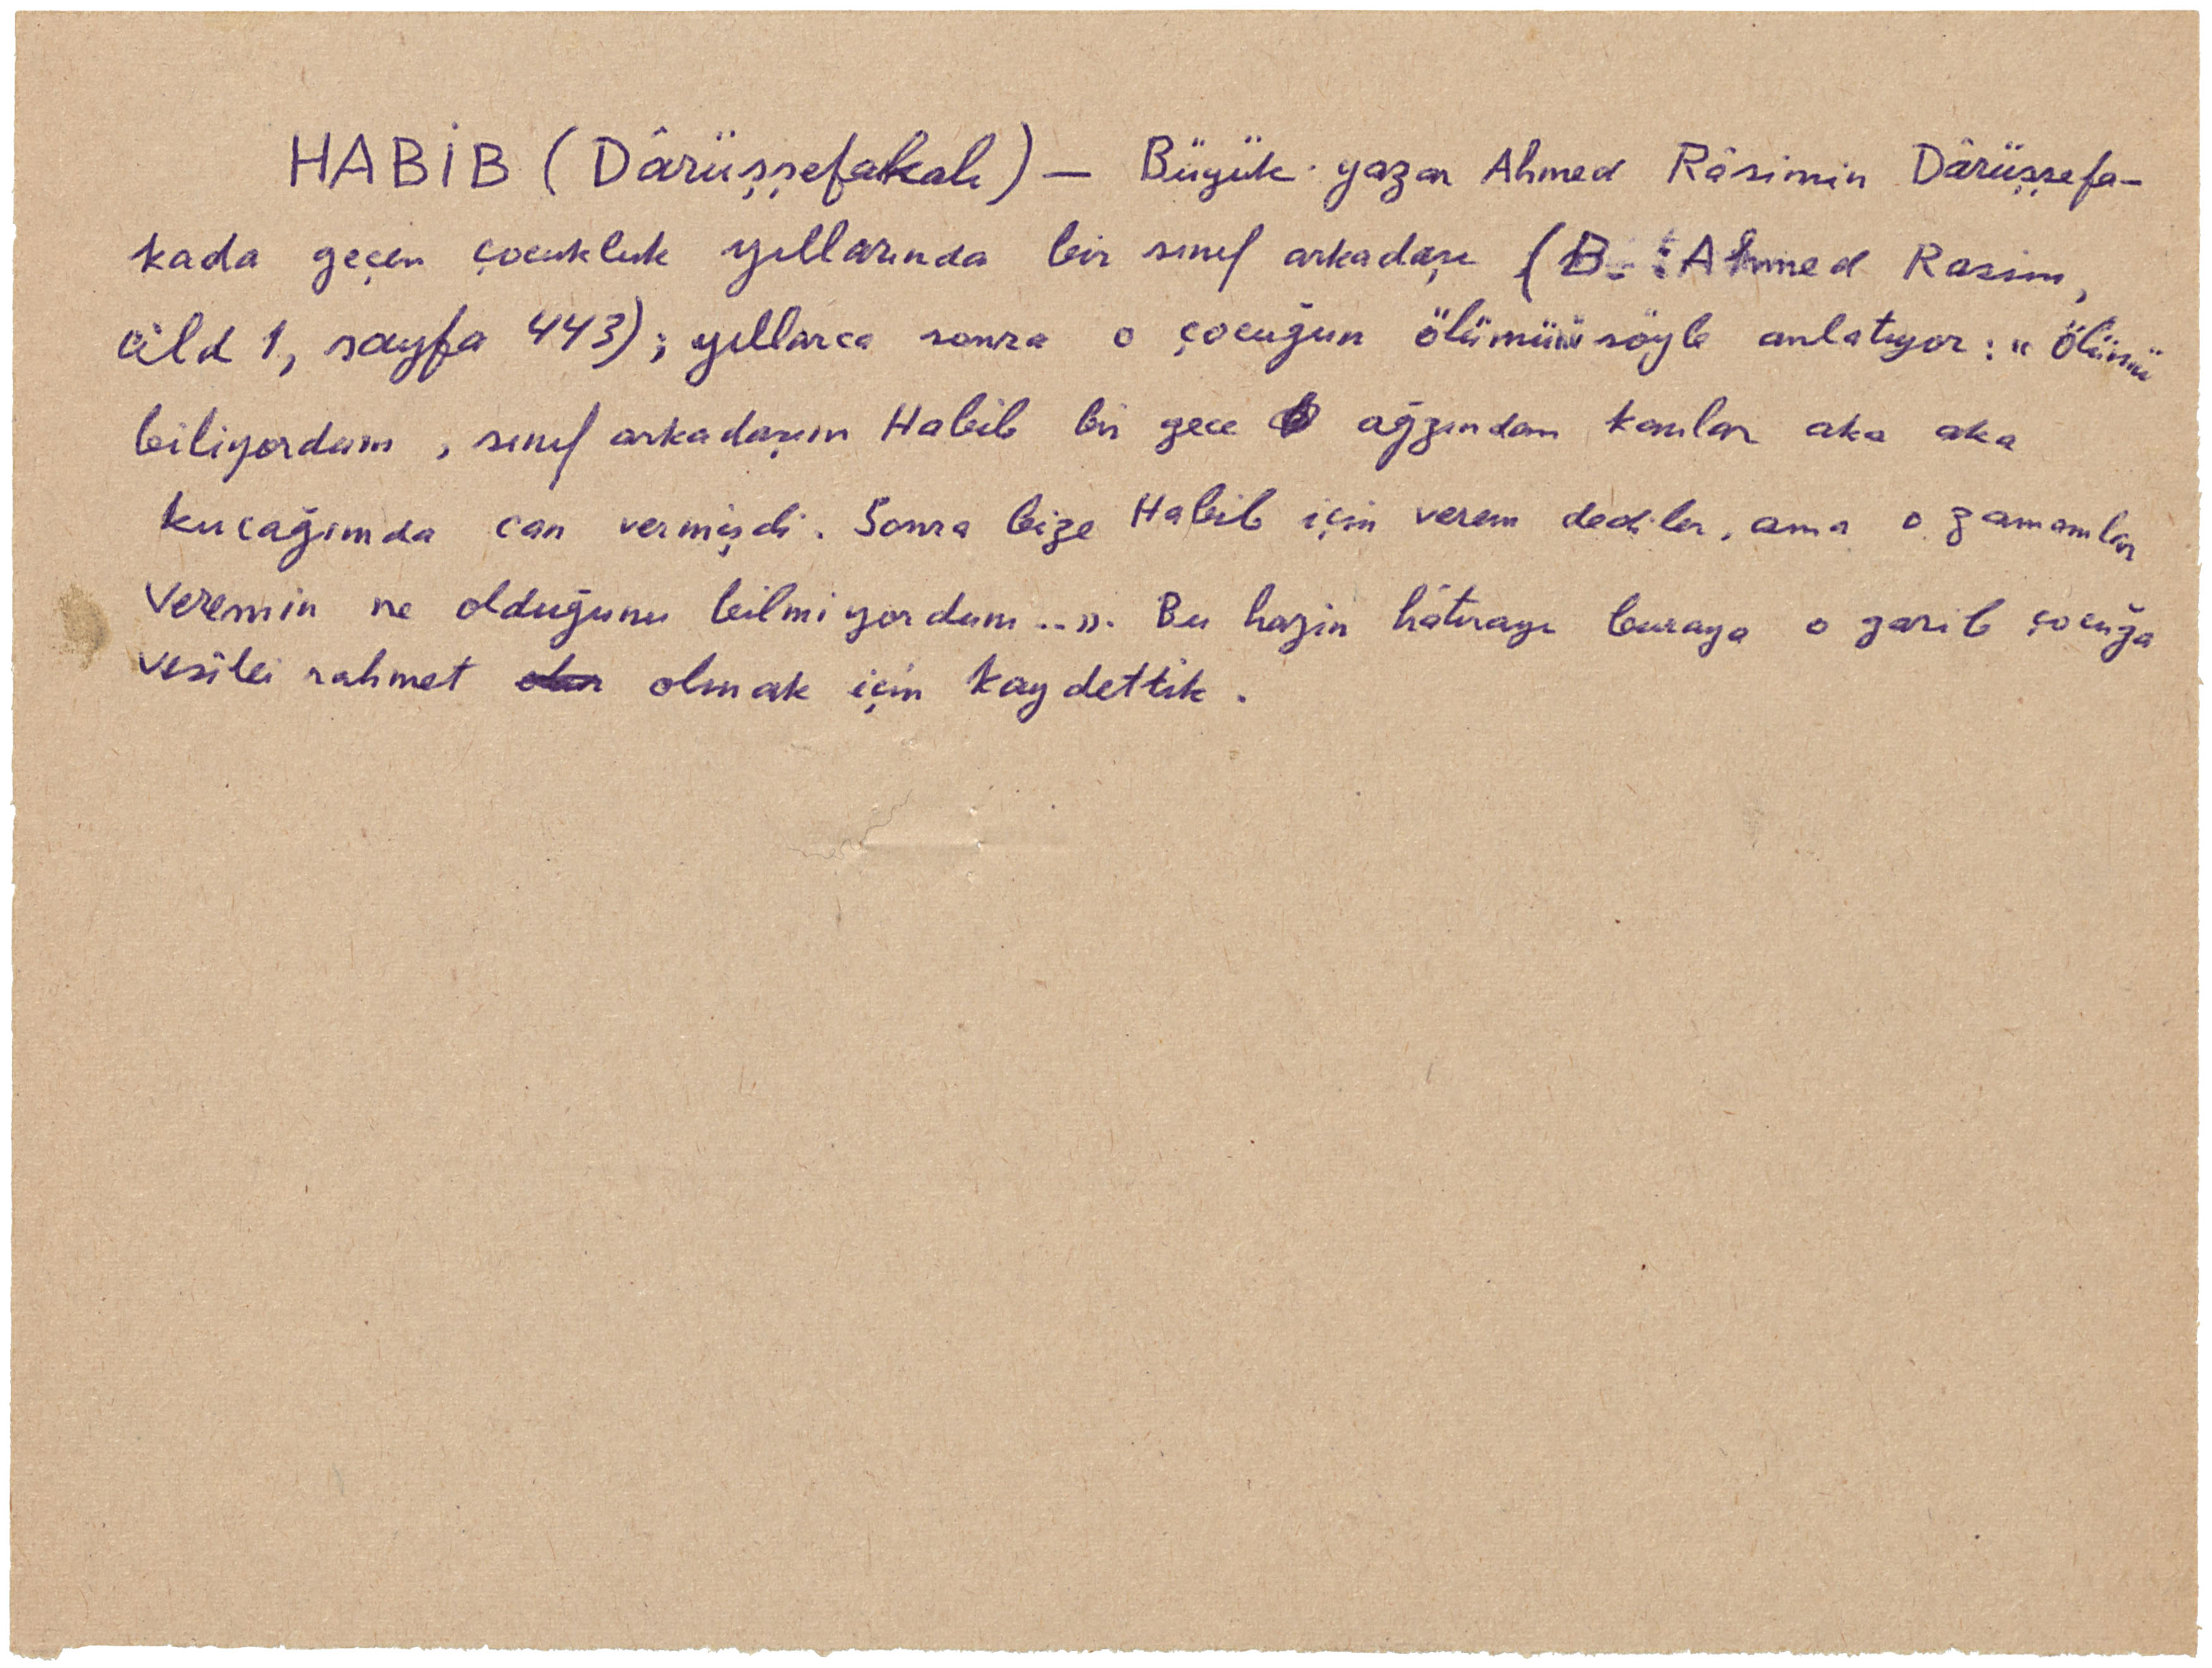 HABİB (Dârüşşefakalı) — Büyük yazar Ahmed Râsimin Dârüşşefa-
kada geçen çocukluk yıllarında bir sınıf arkadaşı (B.: Ahmed Rasim,
cild 1, sayfa 443); yıllarca sonra o çocuğun ölümünü söyle anlatıyor: "Ölümü
biliyordum, sınıf arkadaşım Habib bir gece ağzından kanlar aka aka
kucağımda can vermişdi. Sonra bize Habib için verem dediler, ama o zamanlar
veremin ne olduğunu bilmiyordum..». Bu hazin hâtırayı buraya o garib çocuğa
vesilei rahmet olmak için kaydettik.